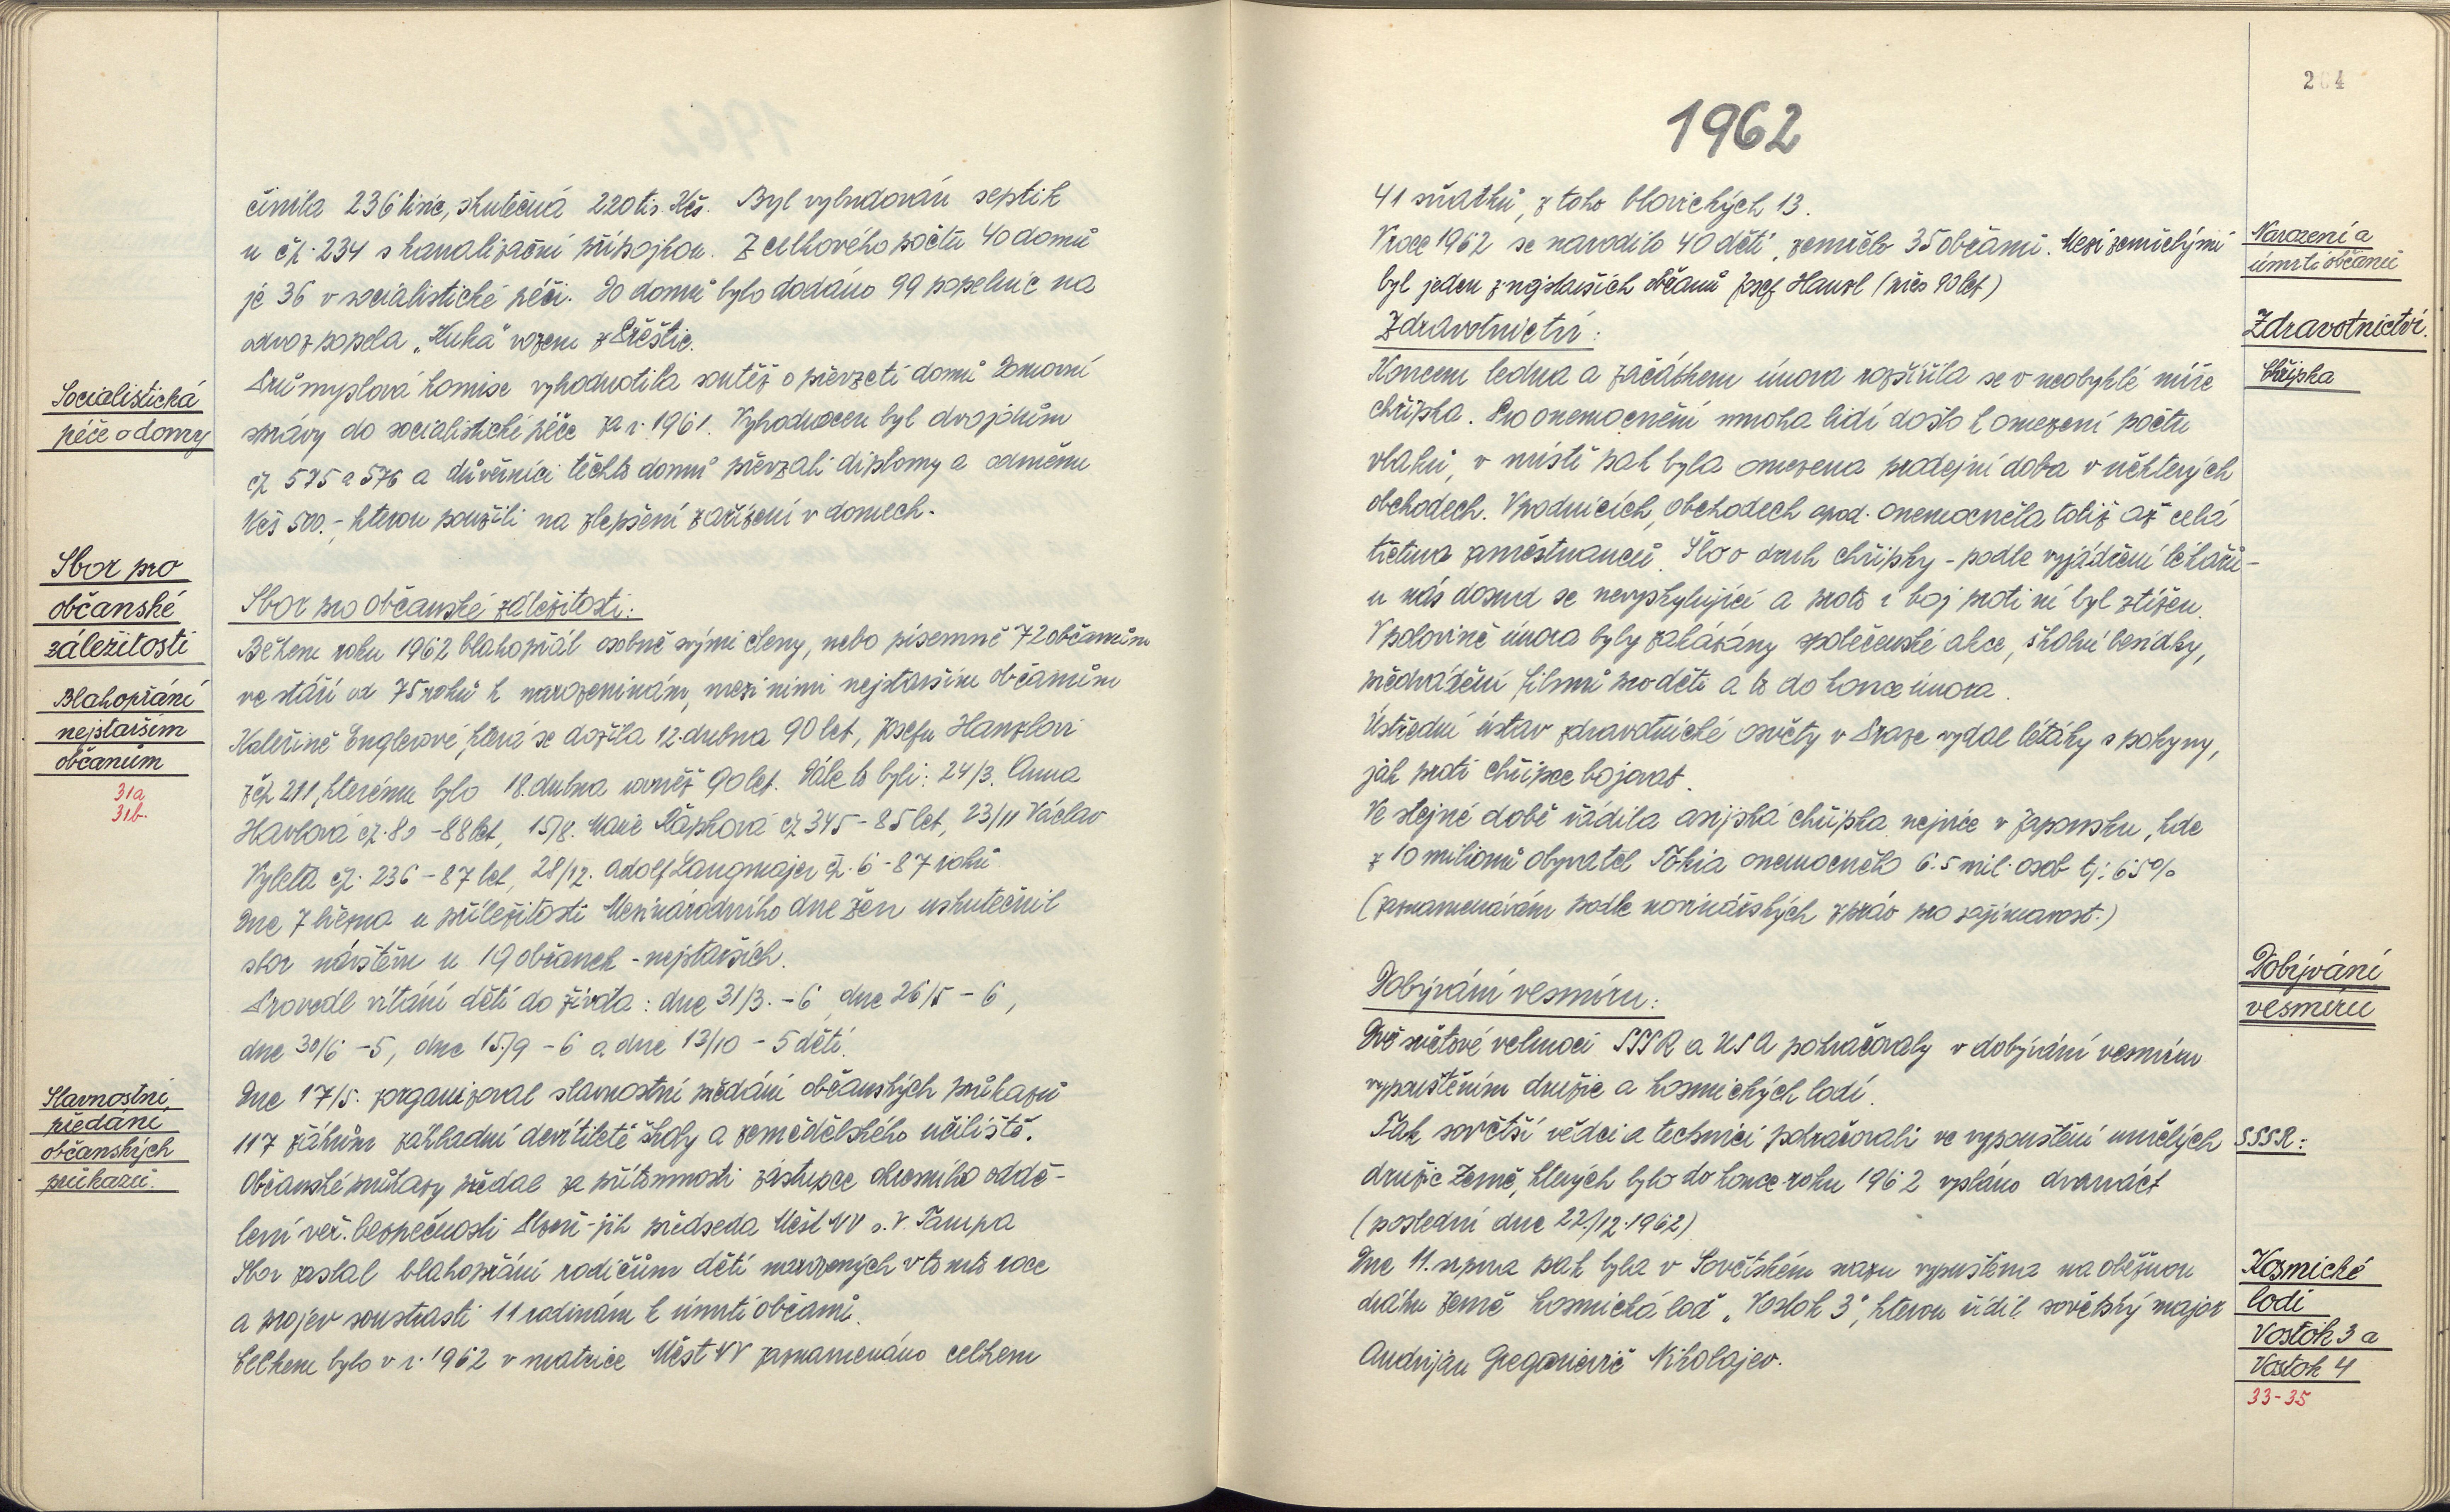 činila 236 tisíc, skutečná 220 tis. Kčs. Byl vybudován septik
u čp. 234 s kanalizační přípojkou. Z celkového počtu 40 domů
je 36 v socialistické péči. Do domů bylo dodáno 99 popelnic na
odvoz popela „Kuka" vozem z Přeštic.
Socialistická
péče o domy
Průmyslová komise vyhodnotila soutěž o převzetí domů Domovní
správy do socialistické péče za r. 1961. Vyhodnocen byl dvojdům
čp 575 a 576 a důvěrníci těchto domů převzali diplomy a odměnu
Kčs 500.-, kterou použili na zlepšení zařízení v domech.
Sbor pro
občanské
záležitosti
Sbor pro občanské záležitosti:
Během roku 1962 blahopřál osobně svými členy, nebo písemně 72 občanům
Blahopřání
nejstarším
občanům
31a
31b.
ve stáří od 75 roků k narozeninám, mezi nimi nejstarším občanům
Kateřině Englerové, která se dožila 12. dubna 90 let, Josefu Hanzlovi
z čp 211, kterému bylo 18. dubna rovněž 90 let. Dále to byli: 24/3. Anna
Havlová čp. 80 - 88 let, 15/8. Marie Kápková čp 345 - 85 let, 23/11 Václav
Vyleta čp. 236 - 87 let, 28/12. Adolf Langmajer čp. 6 - 87 roků.
Dne 7 března u příležitosti Mezinárodního dne žen uskutečnil
sbor návštěvu u 19 občanek - nejstarších.
Provedl vítání dětí do života: dne 31/3. - 6, dne 26/5 - 6,
dne 30/6 - 5, dne 15/9 - 6 a dne 13/10 - 5 dětí.
Slavnostní
předání
občanských
průkazů.
Dne 17/5. zorganizoval slavnostní předání občanských průkazů
117 žákům základní devítileté školy a zemědělského učiliště.
Občanské průkazy předal za přítomnosti zástupce okresního oddě-
lení veř. bezpečnosti Plzeň-jih předseda Měst NV s. V. Tampa
Sbor zaslal blahopřání rodičům dětí narozených v tomto roce
a projev soustrasti 11 rodinám k úmrtí občanů.
Celkem bylo v r. 1962 v matrice Měst NV zaznamenáno celkem
204
1962
41 sňatků, z toho blovických 13.
Narození a
úmrtí občanů
V roce 1962 se narodilo 40 dětí, zemřelo 35 občanů. Mezi zemřelými
byl jeden z nejstarších občanů Josef Hanzl (přes 90 let)
Zdravotnictví.
Zdravotnictví:
Chřipka
Koncem ledna a začátkem února rozšířila se v neobyklé míře
chřipka. Pro onemocnění mnoha lidí došlo k omezení počtu
vlaků, v místě pak byla omezena prodejní doba v některých
obchodech. V podnicích, obchodech apod. onemocněla totiž až celá
třetina zaměstnanců. Šlo o druh chřipky - podle vyjádření lékařů -
u nás dosud se nevyskytující a proto i boj proti ní byl ztížen.
V polovině února byly zakázány společenské akce, školní besídky,
předvádění filmů pro děti a to do konce února.
Ústřední ústav zdravotnické osvěty v Praze vydal letáky s pokyny,
jak proti chřipce bojovat.
Ve stejné době řádila asijská chřipka nejvíce v Japonsku, kde
z 10 milionů obyvatel Tokia onemocnělo 6.5 mil. osob tj: 65%
(zaznamenávám podle novinářských zpráv pro zajímavost.)
Dobývání
vesmíru
Dobývání vesmíru:
Dvě světové velmoci SSSR a USA pokračovaly v dobývání vesmíru
vypouštěním družic a kosmických lodí.
SSSR:
Tak sovětští vědci a technici pokračovali ve vypouštění umělých
družic Země, kterých bylo do konce roku 1962 vysláno dvanáct
(poslední dne 22/12.1962)
Kosmické
lodi
Vostok 3 a
Vostok 4
33-35
Dne 11. srpna pak byla v Sovětském svazu vypuštěna na oběžnou
dráhu Země kosmická loď „Vostok 3", kterou řídil sovětský major
Andrijan Gregorievič Nikolajev.